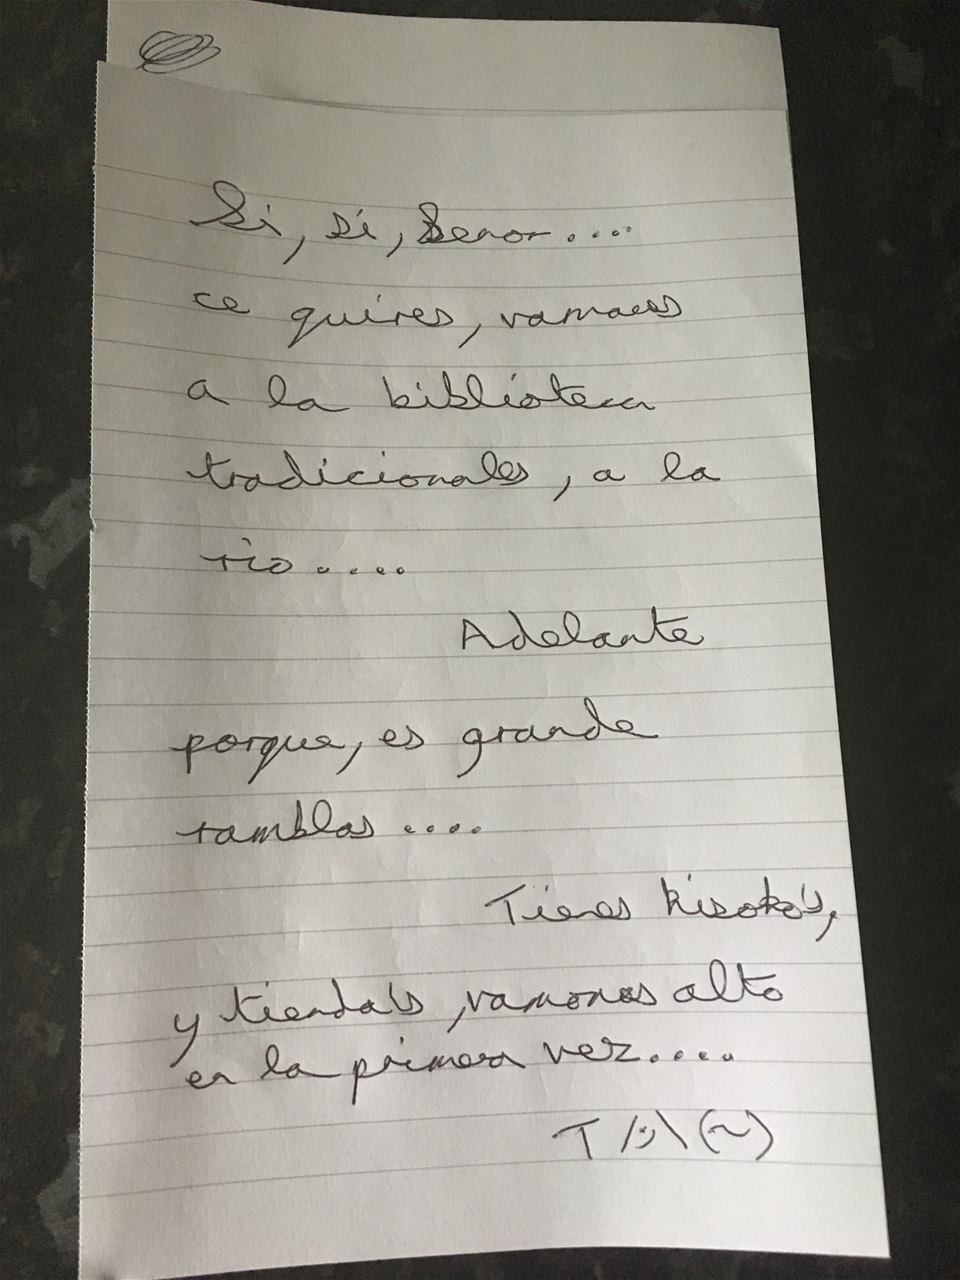 Si, sí, Senor....
ce quires, vamaess
a la biblióteca
tradicionales, a la
rio....
Adelante
porque, es grande
ramblas....
Tienes kisoko's,
y tienda's, vamonos alto
en la primera vez....